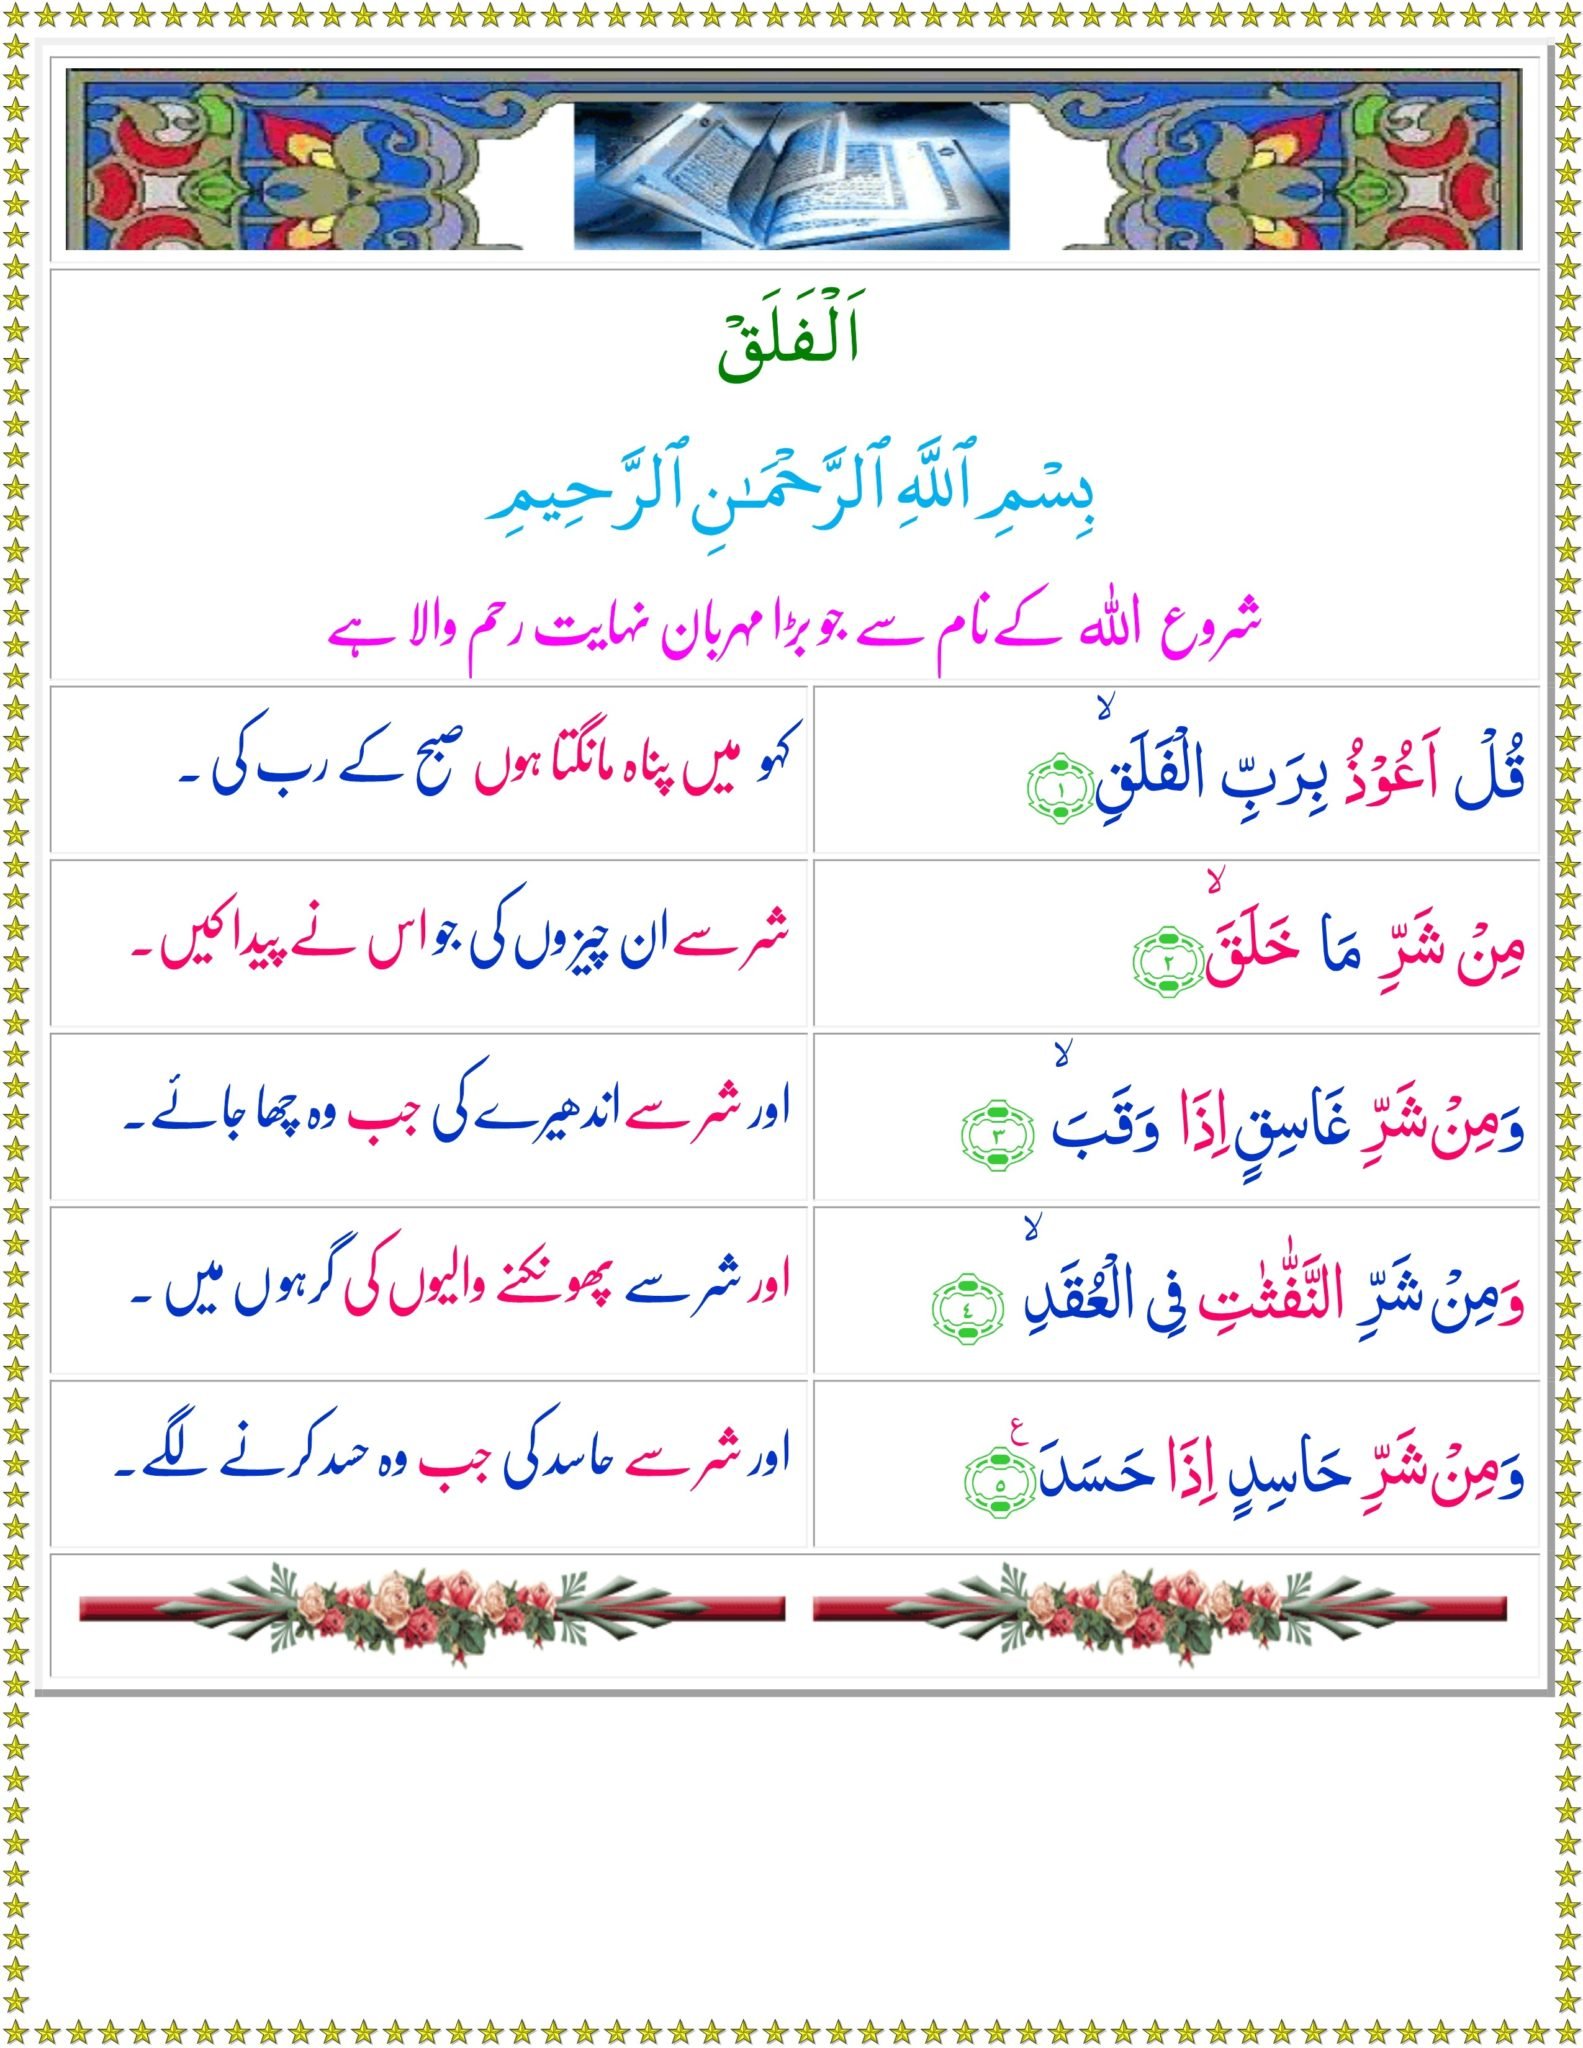 اَلْفَلَقْ
بِسْمِ ٱللَّهِ ٱلرَّحْمَـٰنِ ٱلرَّحِيمِ
شروع اللہ کے نام سے جو بڑا مہربان نہایت رحم والا ہے
قُلْ اَعُوْذُ بِرَبِّ الْفَلَقِۙ ١
کہو میں پناہ مانگتا ہوں صبح کے رب کی ۔
مِنْ شَرِّ مَا خَلَقَۙ ٢
شر سے ان چیزوں کی جو اس نے پیدا کیں ۔
وَمِنْ شَرِّ غَاسِقٍ اِذَا وَقَبَۙ ٣
اور شر سے اندھیرے کی جب وہ چھا جائے ۔
وَمِنْ شَرِّ النَّفّٰثٰتِ فِي الْعُقَدِۙ ٤
اور شر سے پھونکنے والیوں کی گرہوں میں ۔
وَمِنْ شَرِّ حَاسِدٍ اِذَا حَسَدَ ٥ ع
اور شر سے حاسد کی جب وہ حسد کرنے لگے ۔